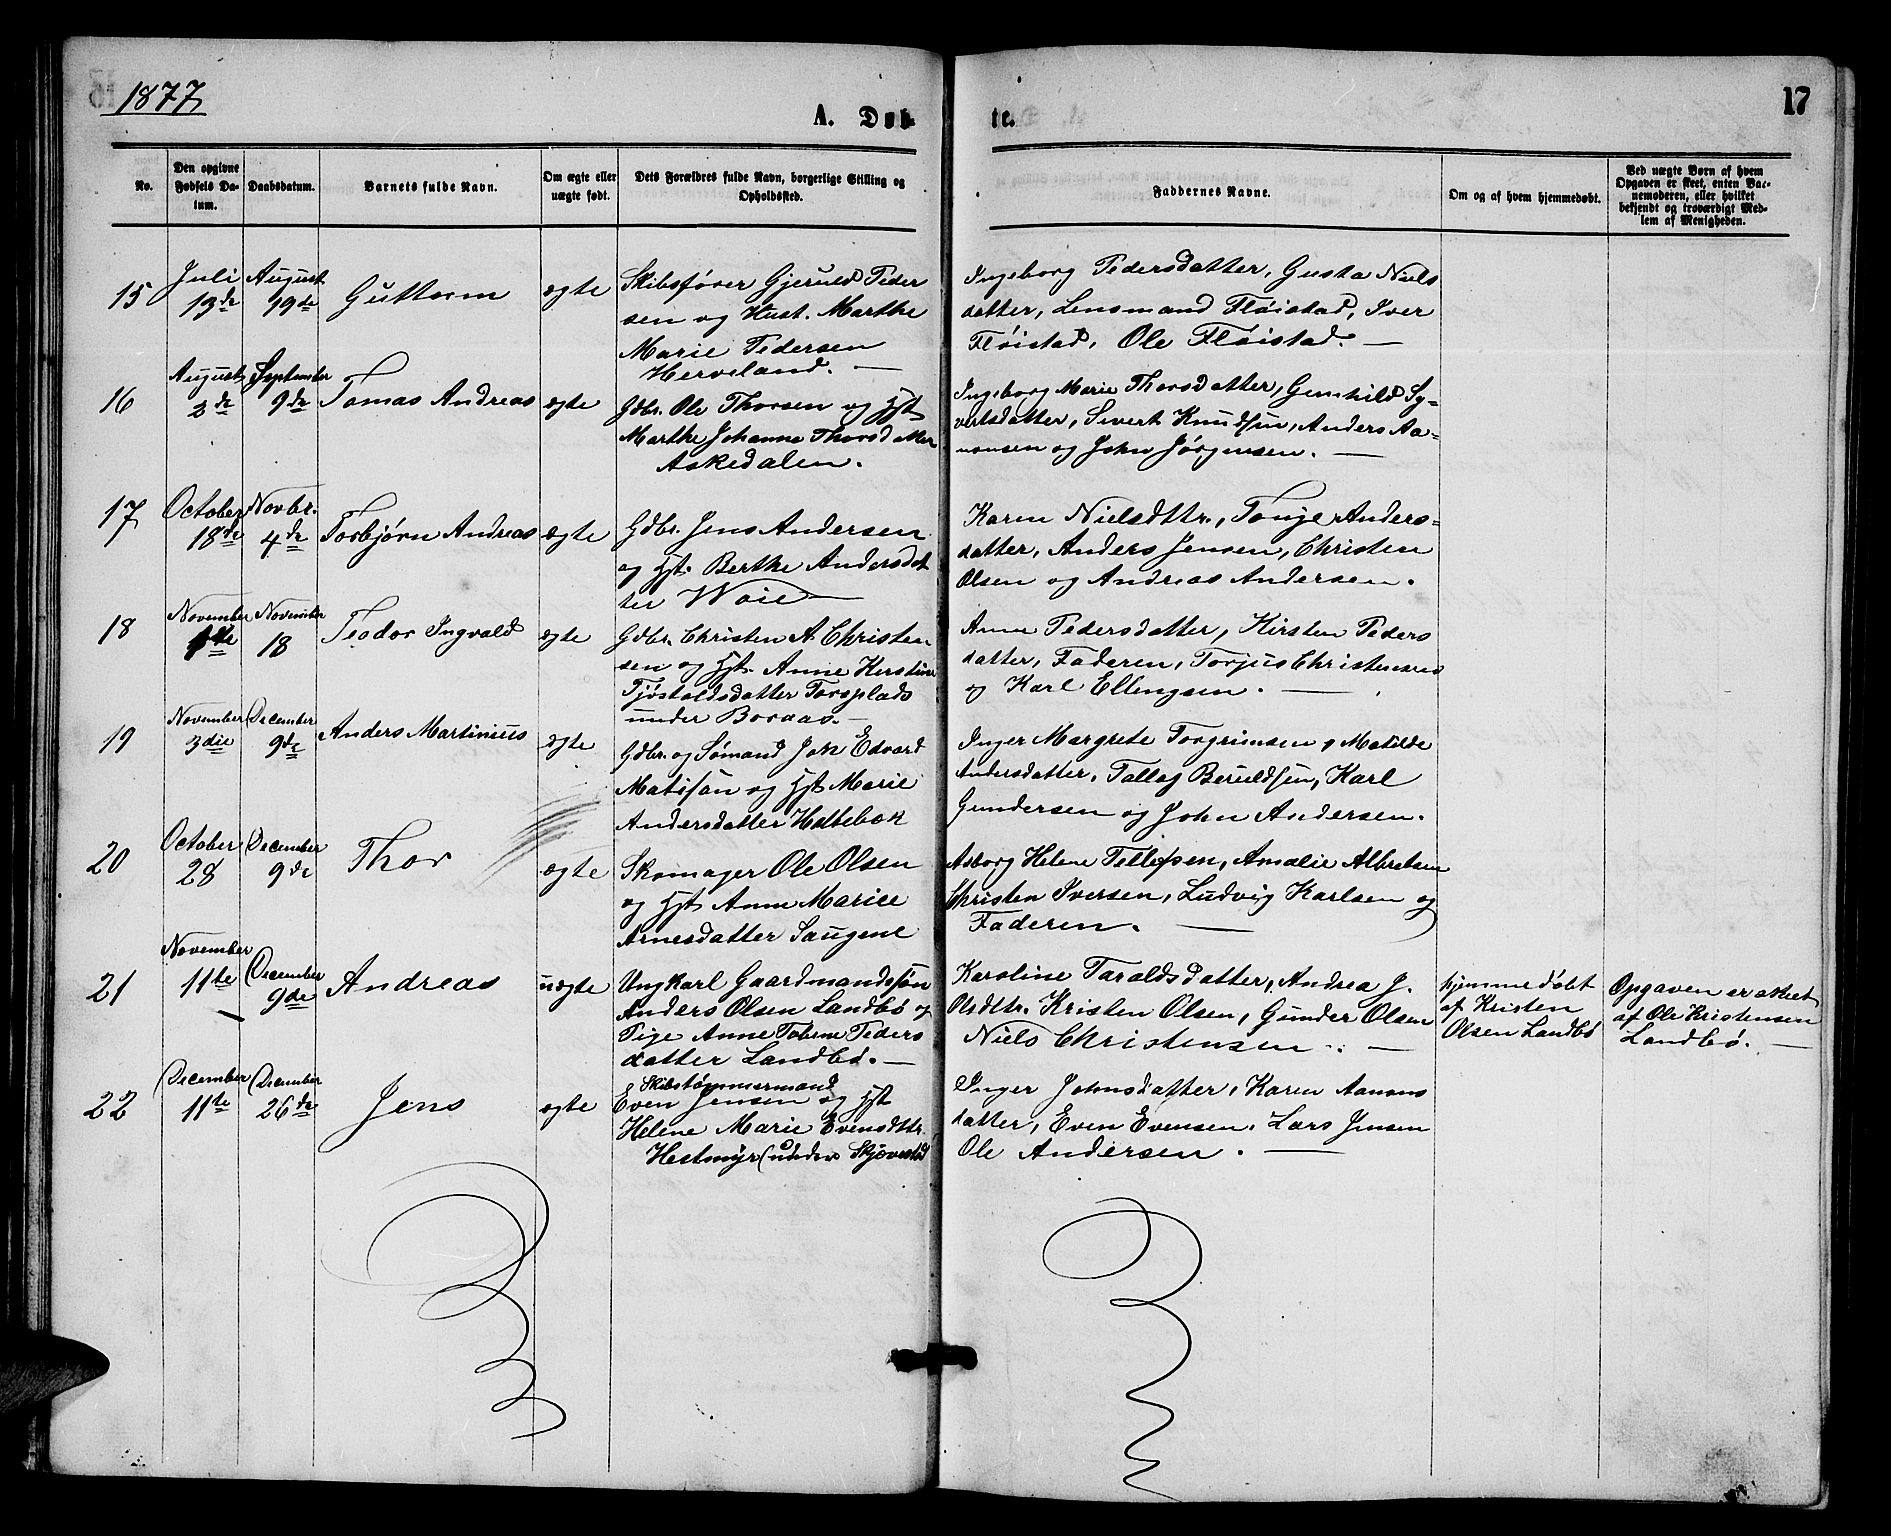 1877
17
A. Døbte.
No.
Den opgivne Fødsels Datum.
Daabsdatum.
Barnets fulde Navn.
Om ægte eller uægte født.
Dets Forældres fulde Navn, borgerlige Stilling og Opholdssted.
Faddernes Navne.
Om og af hvem hjemmedøbt.
Ved uægte Børn af hvem Opgaven er skeet, enten Barnemoderen, eller hvilket bekjendt og troværdigt Medlem af Menigheden.
15
Juli 13de
August 19de
Guttorm
ægte
Skibsfører Gjeruld Peder
sen og Hust. Marthe
Marie Pedersen
Herveland. —
Ingeborg Pedersdatter, Gusta Niels
datter, Lensmand Fløistad, Iver
Fløistad, Ole Fløistad. —
16
August 2de
September 9de
Tomas Andreas
ægte
Gdbr. Ole Thorsen og Hst
Marthe Johanne Thorsdatter
Askedalen.
Ingeborg Marie Thorsdatter, Gunhild Sy-
vertsdatter, Sivert Knudsen, Anders Aa-
nonsen og John Jørgensen. —
17
October 18de
Novbr. 4de
Torbjørn Andreas
ægte
Gdbr. Jens Andersen
og Hst. Berthe Andersdat
ter Woie —
Karen Nielsdttr., Tonje Anders-
datter, Anders Jensen, Christen
Olsen og Andreas Andersen.
18
November
November 18
Teodor Ingvald
ægte
Gdbr. Christen A Christen-
sen og Hst. Anne Kerstine
Tjøstolsdatter Torsplads
under Boraas. —
Anne Pedersdatter, Kirsten Peders
datter, Faderen, Torjus Christensen
og Karl Ellingsen. —
19
November 3die
December 9de
Anders Martinius
ægte
Gdbr. og Sømand Joh Edvard
Matisøn og Hst Marie
Andersdatter Holtebæk
Inger Margrete Torgrimsen, Matilde
Andersdatter, Tallag Beruldsen, Karl
Gundersen og John Andersen.
20
October 28
December 9de
Thor
ægte
Skomager Ole Olsen
og Hst Anne Marie
Arnesdatter Saugene
Asborg Helene Tellefsen, Amalie Albretsen
Christen Iversen, Ludvig Karlsen og
Faderen. —
21
November 11te
December 9de
Andreas
uægte
Ungkarl Gaardmandssøn
Anders Olsen Landbø og
Pige Anne Tobine Peders
datter Landbø. —
Karoline Taraldsdatter, Andrea J.
Olsdttr. Kristen Olsen, Gunder Olsen
Niels Christensen. —
hjemmedøbt
af Kristen
Olsen Landbø
Opgaven er skeet
af Ole Kristensen
Landbø. —
22
December 11te
December 26de
Jens
ægte
Skibstømmermand
Even Jensen og Hst
Helene Marie Evensdttr.
Hestmyr (under Skjævestad
Inger Johnsdatter, Karen Aanons
datter, Even Evensen, Lars Jensen
Ole Andersen. —